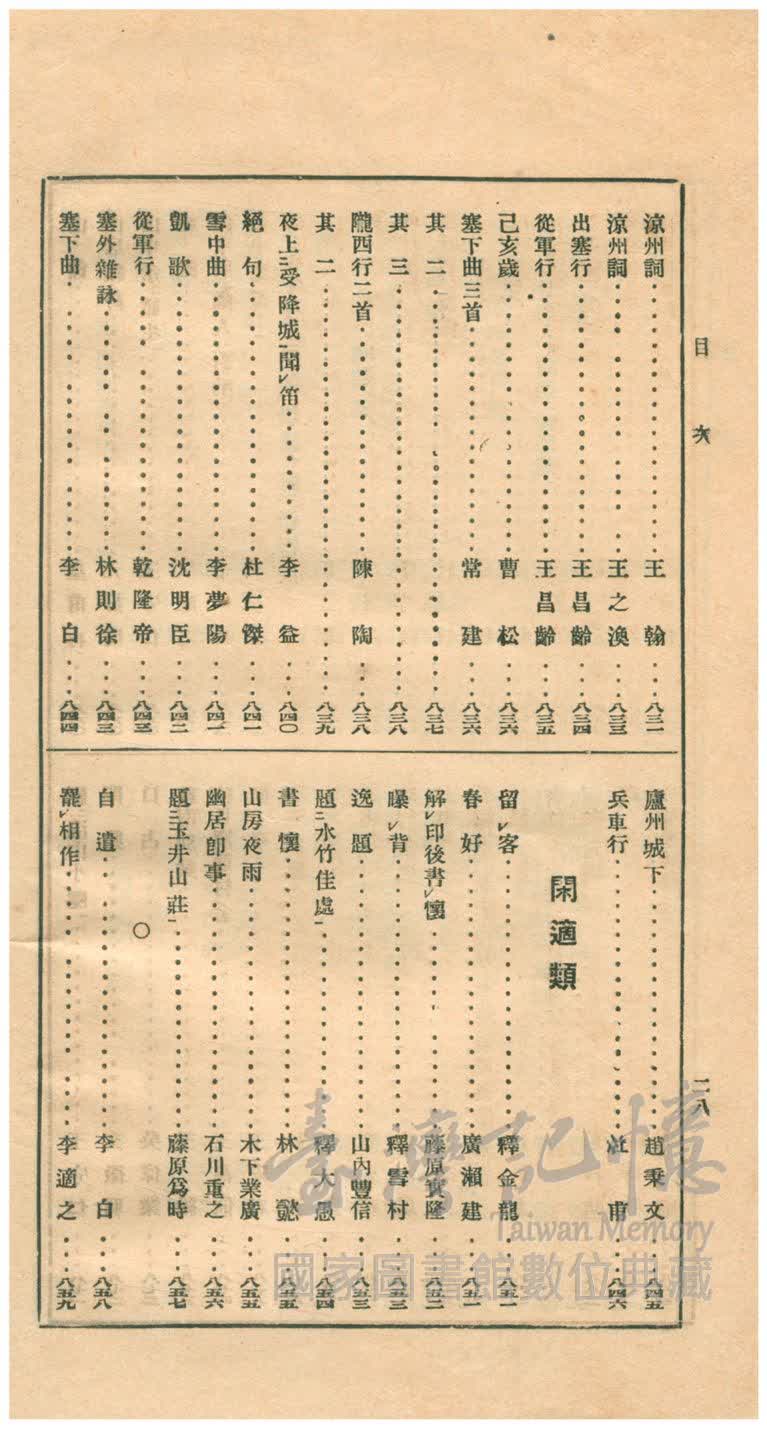 目次
二八
涼州詞……王翰…八三一
涼州詞……王之渙…八三三
出塞行……王昌齡…八三四
從軍行……王昌齡…八三五
己亥歲……曹松…八三六
塞下曲三首……常建…八三六
其二……八三七
其三……八三八
隴西行二首……陳陶…八三八
其二……八三九
夜上二受降城一聞レ笛……李益…八四〇
絕句……杜仁傑…八四一
雪中曲……李夢陽…八四一
凱歌……沈明臣…八四二
從軍行……乾隆帝…八四三
塞外雜詠……林則徐…八四三
塞下曲……李白…八四四
廬州城下……趙秉文…八四五
兵車行……杜甫…八四六
閑適類
留レ客……釋金龍…八五一
春好……廣瀨建…八五一
解レ印後書レ懷……藤原實隆…八五二
曝レ背……釋雪村…八五三
逸題……山內豐信…八五三
題二水竹佳處一……釋大愚…八五四
書懷……林懿…八五五
山房夜雨……木下業廣…八五五
幽居卽事……石川重之…八五六
題二玉井山莊一……藤原爲時…八五七
〇
自遣……李白…八五八
罷レ相作……李適之…八五九
臺灣記憶
Taiwan Memory
國家圖書館數位典藏